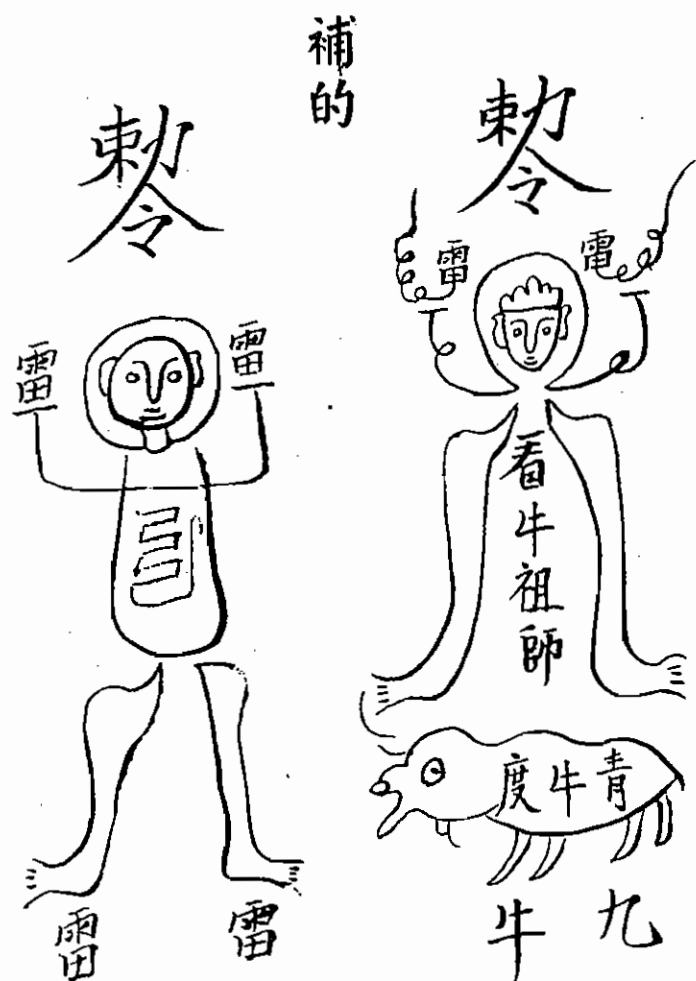 補的
勅令
電
雷
看牛祖師
青牛度
九牛
勅令
雷
雷
雷
雷